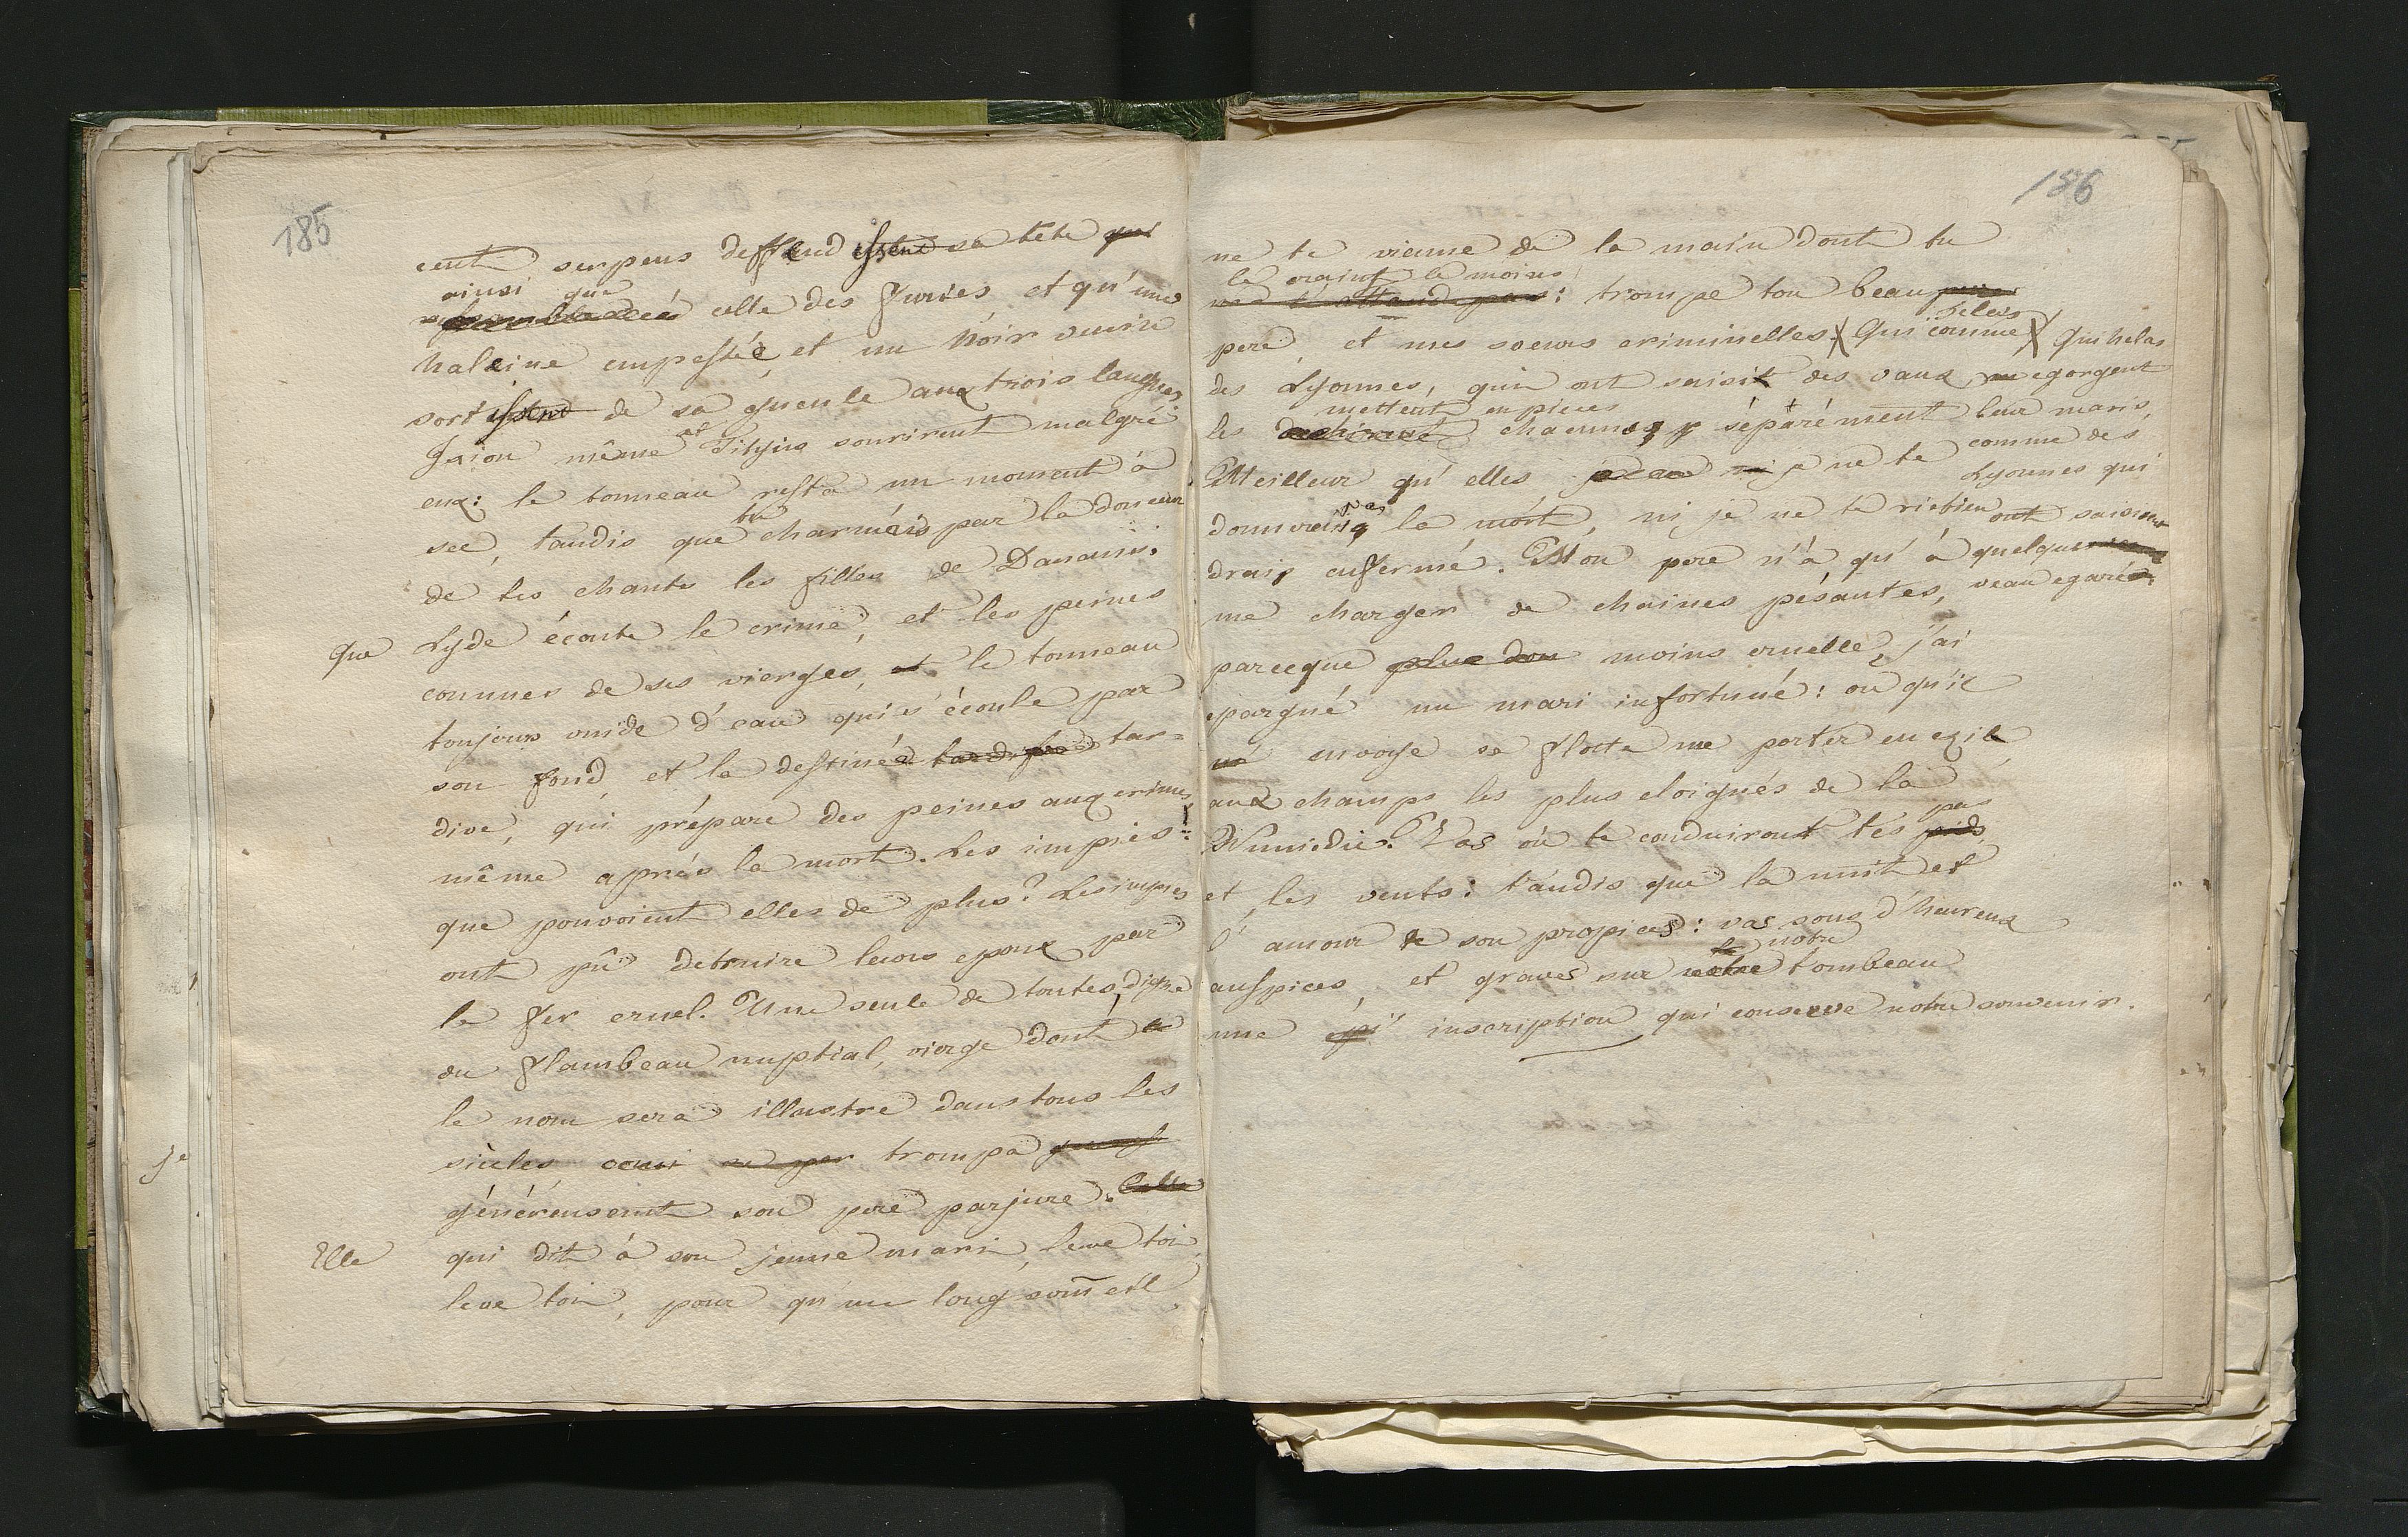 185
cent serpens deffend issent sa tete qui
ainsi que
semblable à celle des furies et qu'une
haleine empestée, et un noir venin
sortissent de sa gueule aux trois langues.
Ixion même et Titÿus sourirent malgré
eux: le tonneau resta un moment à
sec, tandis que tu charmais par la douceur
de tes chants les filles de Danaüs.
Que Lyde écoute le crime, et les peines
connues de ses vierges, et le tonneau
toujours vuide d'eau qui s'écoule par
son fond, et la destinée tardive tar=
dive, qui prépare des peines aux crimes
même après la mort. Les impies!
que pouvoient elles de plus? Les impies
ont pû detruire leurs epoux par
le fer cruel. Une seule de toutes, digne
du flambeau nuptial, vierge dont la
le nom sera illustre dans tous les
siècles, trompa
généreusement son pere parjure. Celle
Elle qui dit à son jeune mari, leve toi,
leve toi, pour qu'un long som̄eil,
je
186
ne te vienne de la main dont tu
le crains le moins
ne l'attends pas: trompe ton beau pere
pere, et mes soeurs criminelles. Qui comme helas Qui helas
des Lyonnes, qui ont saisit des vaux, egorgent
mettent en pieces
les dechirent chacunes séparément leur maris,
Meilleur qu'elles je ne te comme des
Lyonnes qui
donnerais pas la mort, ni je ne te retien ont saisient
drais enfermé. Mon pere n'a qu'à quelque
me charger de chaines pésantes, veau egaré.
parceque plus dou moins cruelle, j'ai
epargné un mari infortuné: ou qu'il
envoye sa flotte me porter en exil,
aux champs les plus eloignés de la
Numidie. Vas où te conduiront tes pieds pas
et les vents: tandis que la nuit et
l'amour te son propices: vas sous d'heureux
auspices, et graves sur notre le notre tombeau
une epi inscription qui conserve notre souvenir.